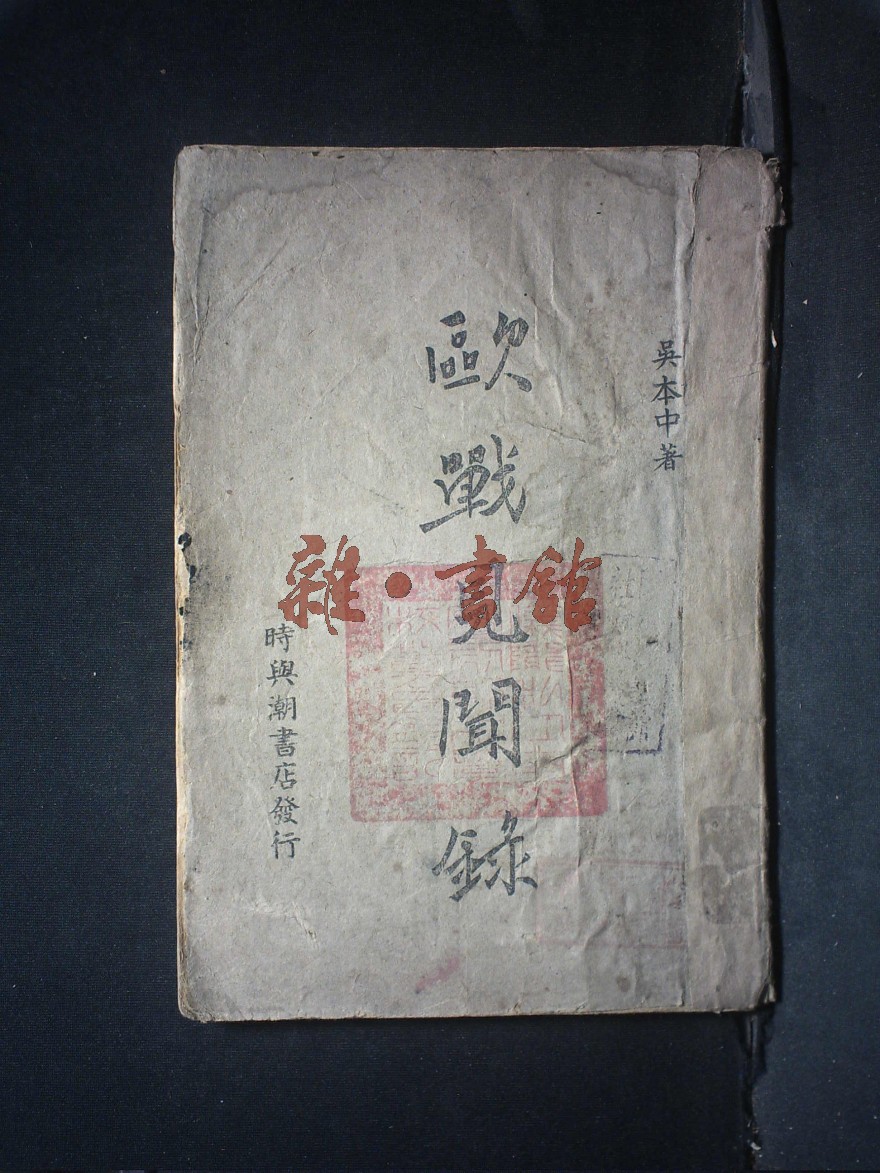 吳本中著
歐戰見聞錄
時與潮書店發行
雜·書館